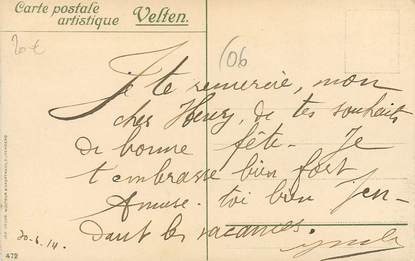 Carte postale
artistique Velten.
20 €
(06
Je te remercie, mon
cher Henry, de tes souhaits
de bonne fête. Je
t'embrasse bien fort
Amuse-toi bien Pen-
dant les vacances.
30-6.14.
472